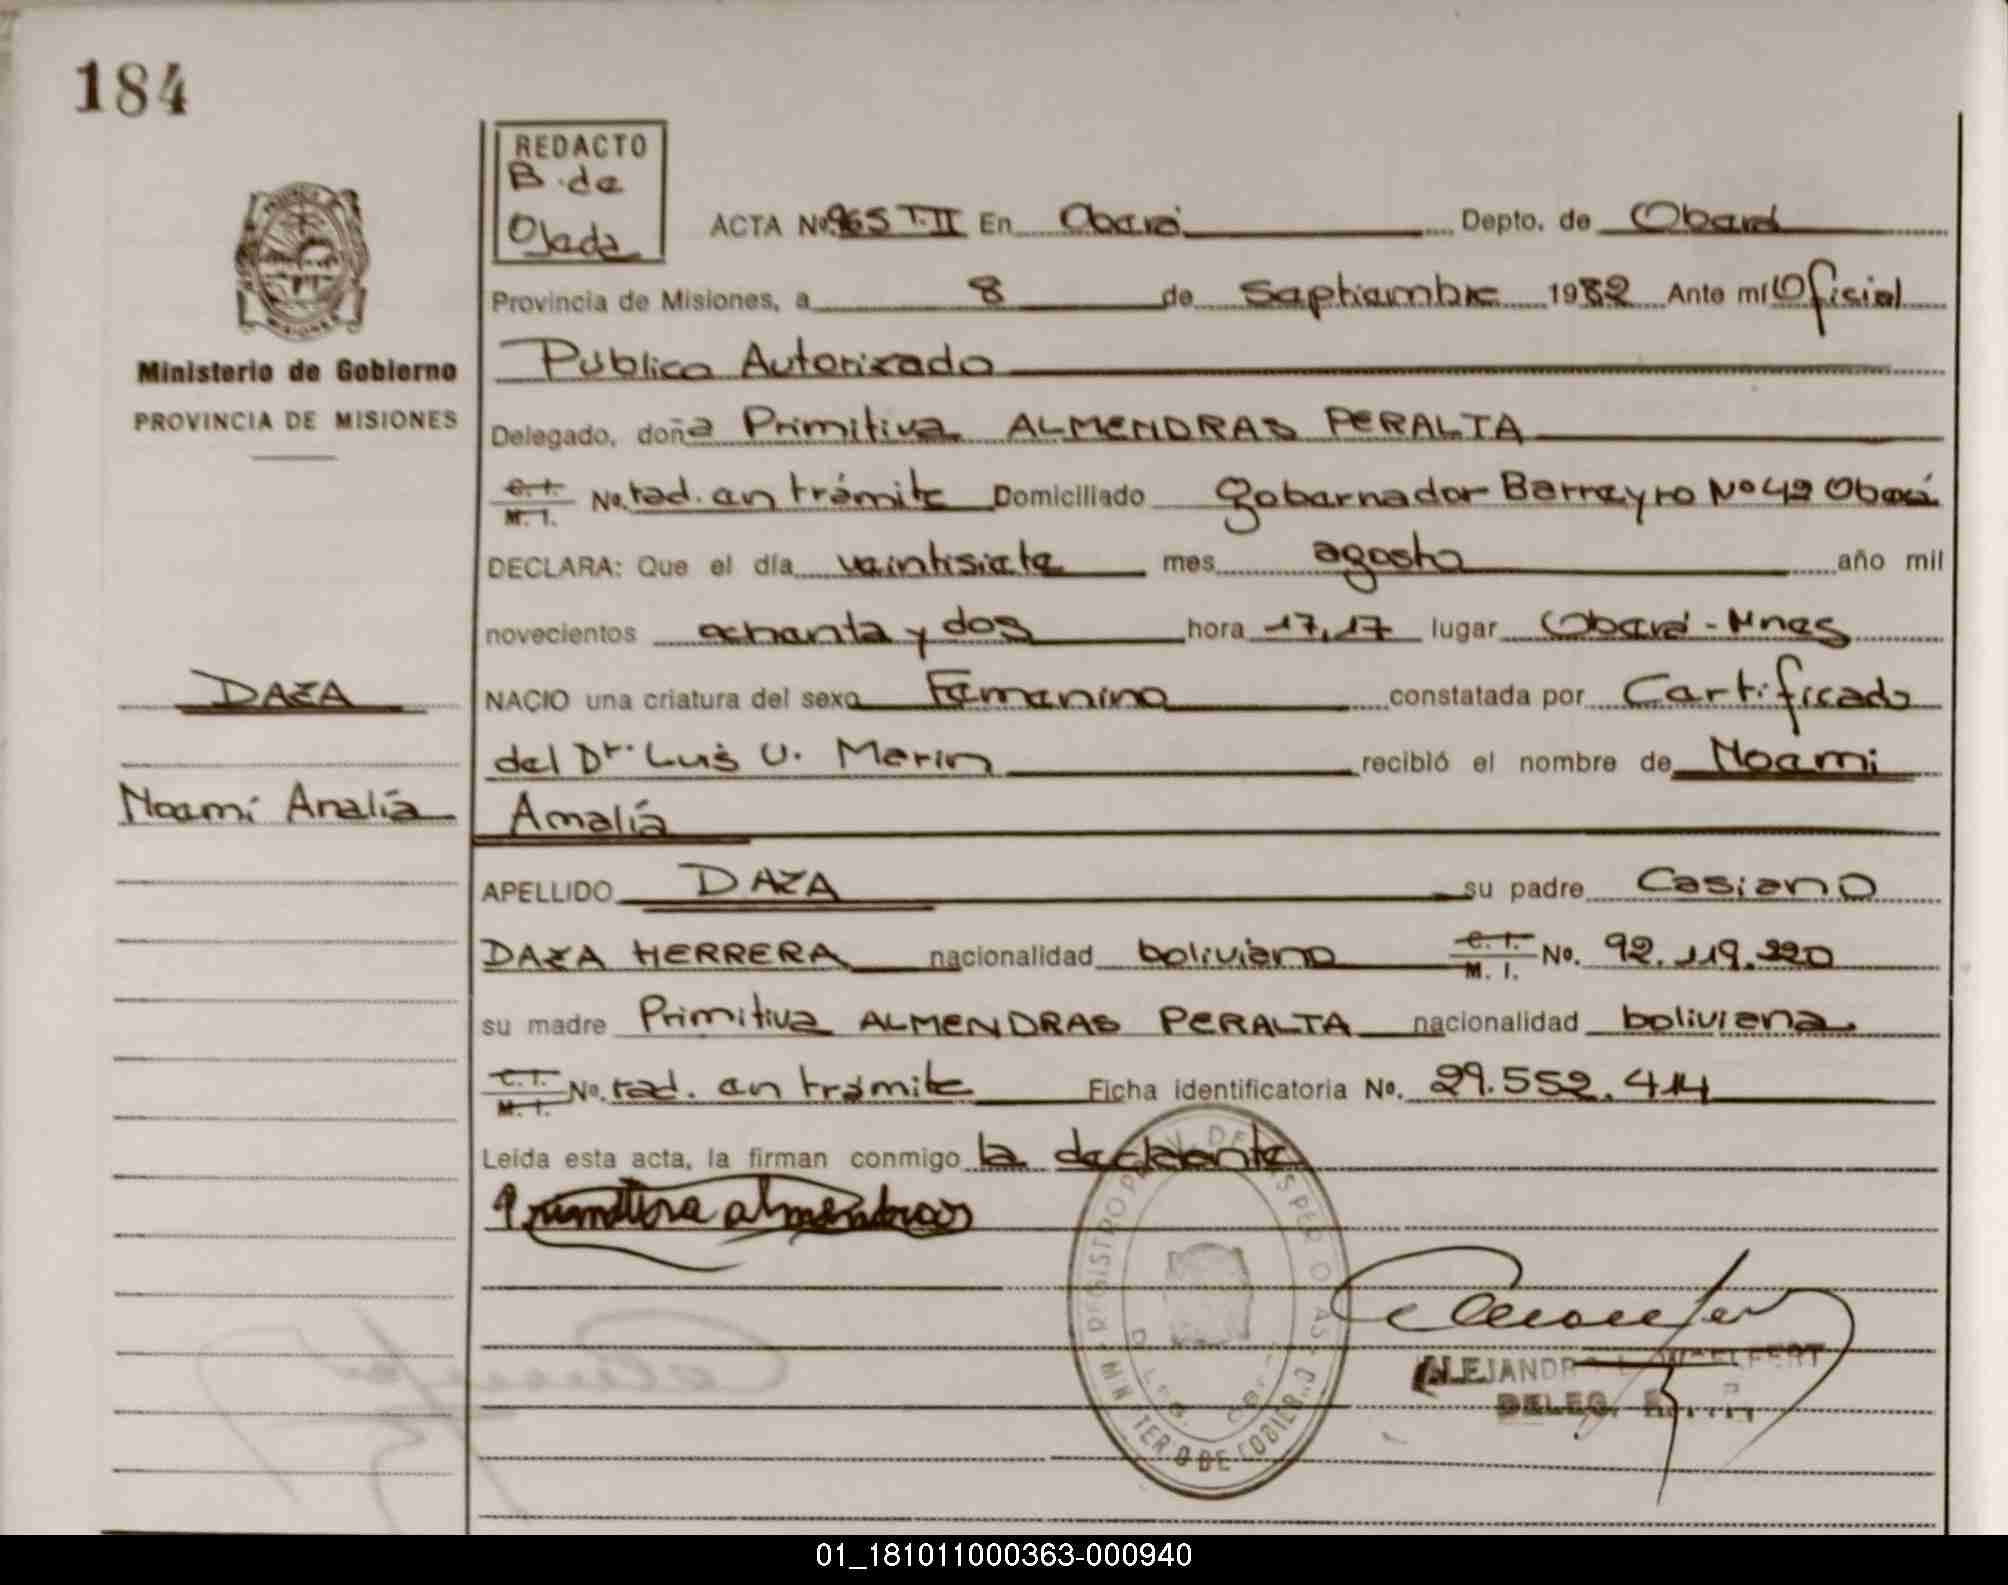 184
REDACTO
B. de
Ojeda
ACTA No. 965 T.II En Oberá Depto. de Oberá
Provincia de Misiones, a 8 de Septiembre 1982 Ante mí Oficial
Público Autorizado
Ministerio de Gobierno
PROVINCIA DE MISIONES
Delegado, doña Primitiva ALMENDRAS PERALTA
C. I. M. I. No. rad. en trámite Domiciliado Gobernador Barreyro Nº 42 Oberá
DECLARA: Que el día veintisiete mes agosto año mil
novecientos ochenta y dos hora 17,17 lugar Oberá - Mnes
DAZA
NACIO una criatura del sexo Femenino constatada por Certificado
del Dr. Luis U. Merin recibió el nombre de Noemi
Noemí Analía
Amalía
APELLIDO DAZA su padre Casiano
DAZA HERRERA nacionalidad boliviano C. I. M. I. No. 92.119.220
su madre Primitiva ALMENDRAS PERALTA nacionalidad boliviana.
C. I. M. I. No. rad. en trámite Ficha identificatoria No. 29.552.414
Leída esta acta, la firman conmigo la declarante
Primitiva almendras
MISIONES
01_181011000363-000940